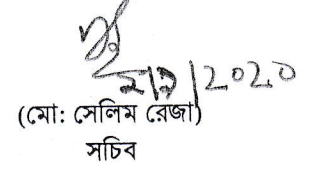 ২/৯/২০২০
(মো: সেলিম রেজা)
সচিব